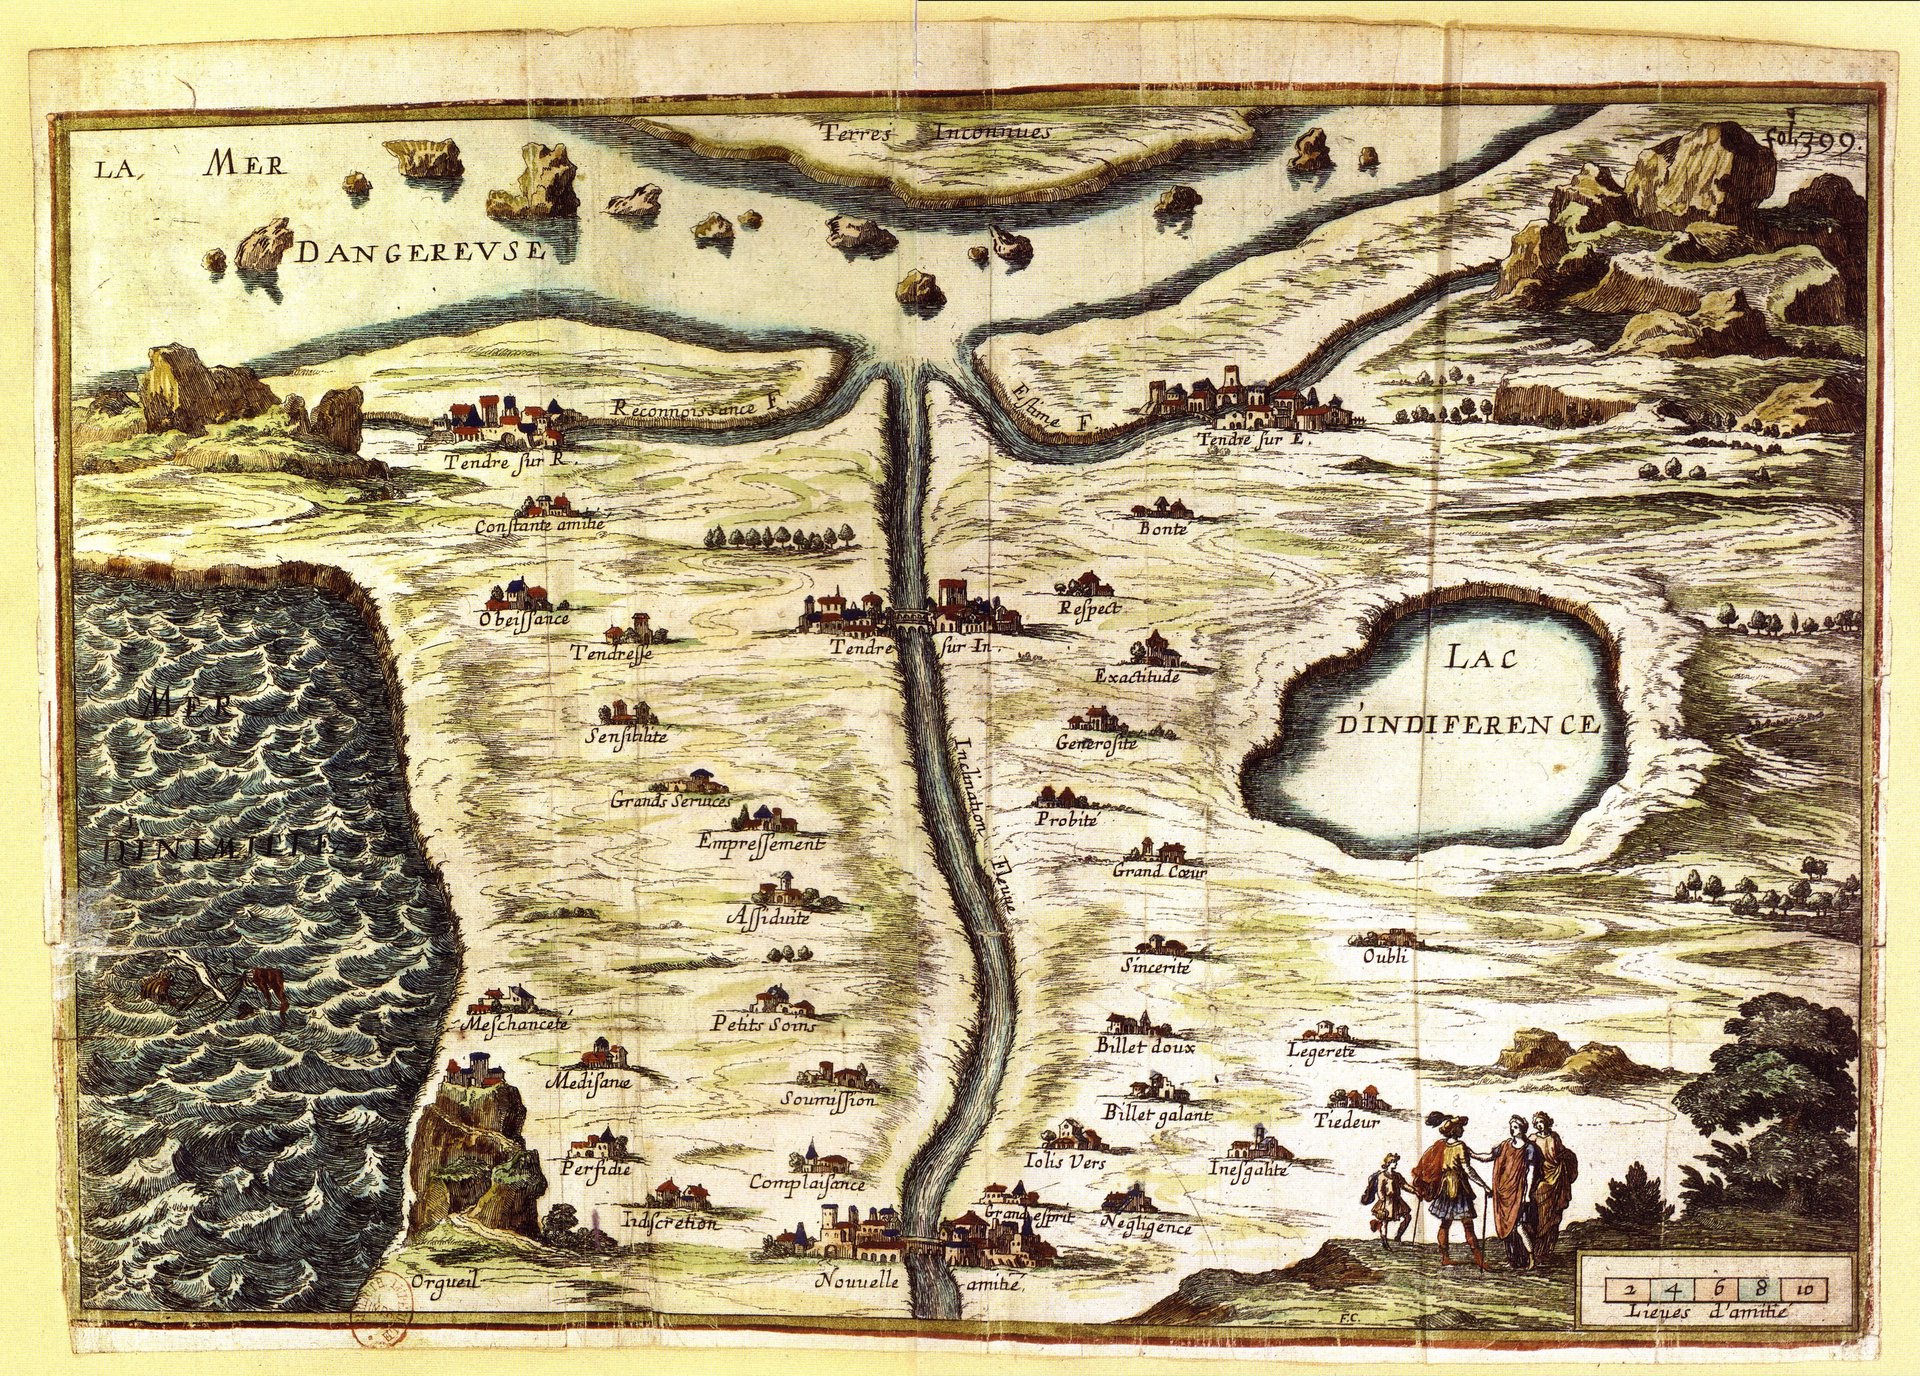 Terres Inconnues
fol. 399.
LA MER
DANGEREVSE
Reconnoissance F.
Estime F.
Tendre sur R.
Tendre sur E.
Constante amitié
Bonté
Obeissance
Respect
Tendresse
Tendre sur In.
Exactitude
LAC
D'INDIFERENCE
MER
D'INIMITIE
Sensibilité
Generosité
Inclination Fleuve
Grands Services
Probité
Empressement
Grand Cœur
Assiduité
Sincerité
Oubli
Meschanceté
Petits Soins
Billet doux
Legereté
Medisance
Soumission
Billet galant
Tiedeur
Perfidie
Complaisance
Iolis Vers
Inesgalité
Indiscretion
Grand esprit
Negligence
Orgueil
Nouvelle amitié
2 4 6 8 10
Lieues d'amitié
F.C.